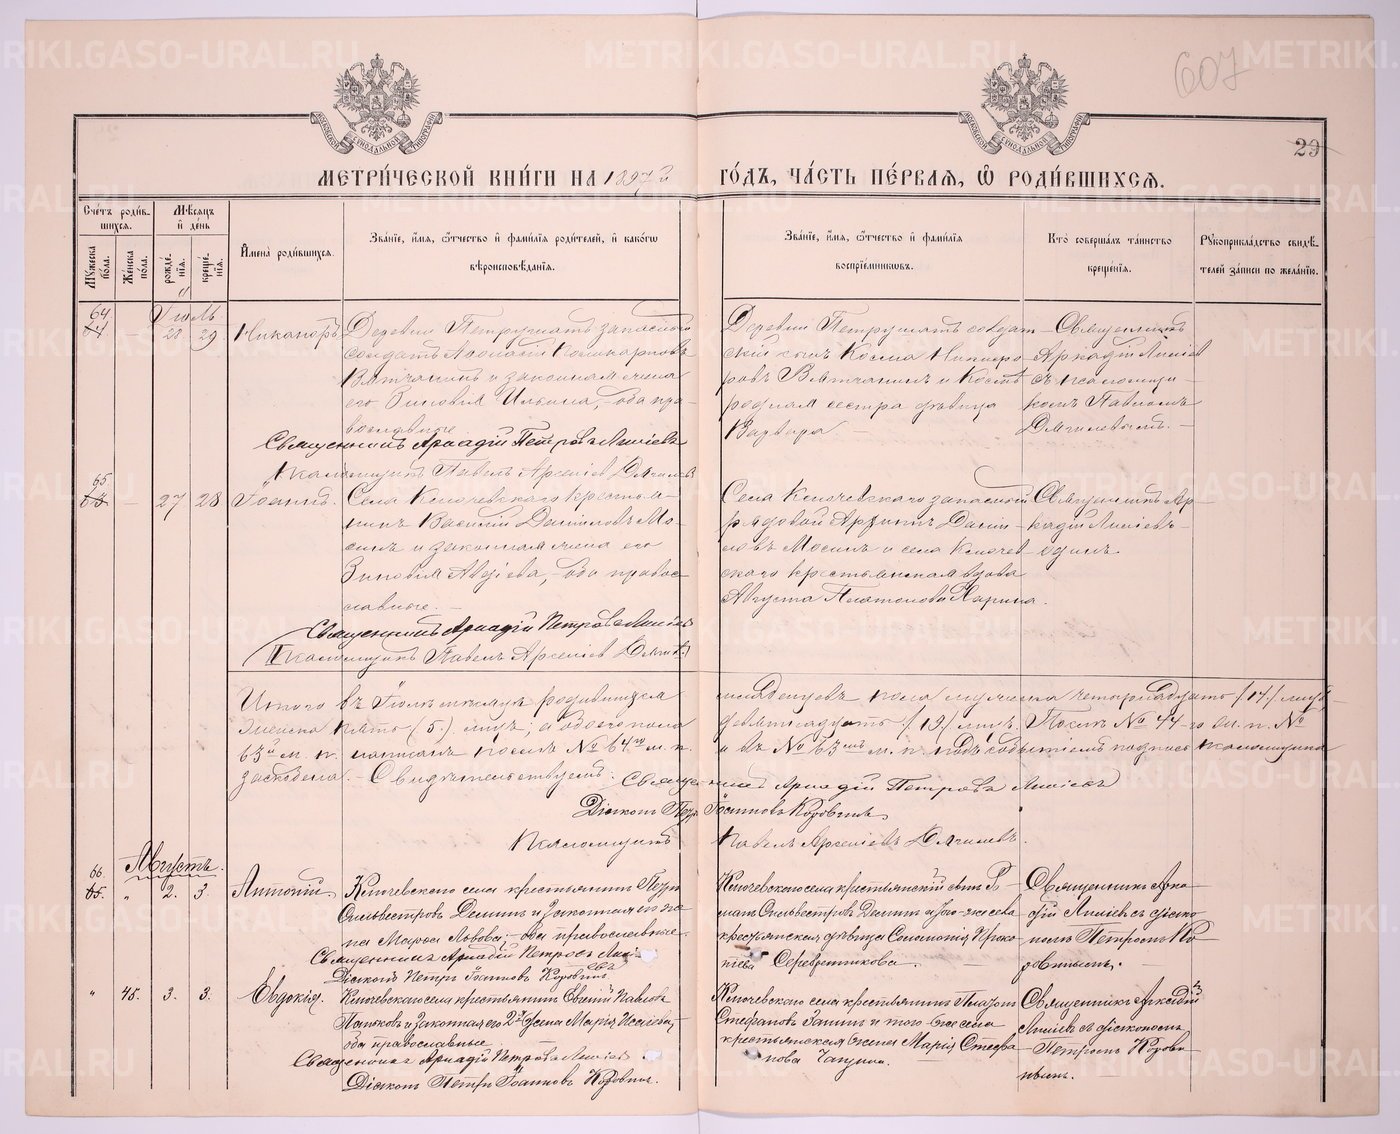 607
29
МЕТРИ́ЧЕСКОЙ КНИ́ГИ НА 1897й ГО́ДЪ, ЧА́СТЬ ПЕ́РВАЯ, Ѡ РОДИ́ВШИХСЯ.
Сче́тъ роди́в-
шихся.
Му́жеска по́ла.
Же́нска по́ла.
Мѣ́сяцъ
и҆ де́нь
рожде́нія.
креще́нія.
И҆мена̀ роди́вшихся.
Зва́ніе, и҆́мя, ѻ҆́тчество и҆ фами́лія роди́телей, и҆ како́гѡ
вѣроисповѣ́данія.
Зва́ніе, и҆́мя, ѻ҆́тчество и҆ фами́лія
воспрїе́мниковъ.
Кто̀ соверша́лъ та́инство
креще́нія.
Рукоприкла́дство свидѣ́-
телей за́писи по жела́нію.
Іюль
64
28. 29.
Никаноръ
Деревни Петрушатъ запасной
солдатъ Поликарповъ
Вятчанинъ и законная жена
его Зиновія Ильина, оба пра-
вославные
Священникъ Аркадій Петровъ Лисіевъ
Псаломщикъ Павелъ Арсеніевъ Дягилев
Деревни Петрушатъ солдат-
скій сынъ Косма Никифо-
ровъ Вятчанинъ и
родная сестра дѣвица
Варвара
Священникъ
Аркадій Лисіев
съ псаломщи-
комъ Павломъ
Дягилевымъ.
65
27 28
Іоаннъ.
Села Ключевского крестья-
нинъ Василій Даниловъ Мо-
синъ и законная жена его
Зиновія Авдіева, оба правос-
лавные.
Священникъ Аркадій Петровъ Лисіевъ
Псаломщикъ Павелъ Арсеніев Дягилев
Села Ключевского запасный
рядовой Данил-
овъ Мосинъ и села Ключев-
ского крестьянская вдова
Августа Платонова
Священникъ Ар-
кадій Лисіевъ
одинъ.
Итого въ Іюлѣ мѣсяцѣ родившихся младенцевъ пола мужеска четырнадцать (14) лицъ,
женска пять (5.) лицъ; а обоего пола девятнадцать (19) лицъ. Послѣ № 44-го м. п. №
63й м. п. написанъ послѣ № 64го м. п. и въ № 63мъ м. п. подъ событіемъ подпись псаломщика
заскоблена. Свидѣтельствуемъ: Священникъ Аркадій Петровъ Лисіевъ
Діаконъ Петръ Іоанновъ Коровинъ
Псаломщикъ Павелъ Арсеніевъ Дягилевъ.
Августъ.
66.
65. " 2. 3
Антоній.
Ключевского села крестьянинъ Петръ
Сильвестровъ Деминъ и законная его же-
на Марѳа Львова; оба православные.
Священникъ Аркадій Петровъ Лисіевъ
Діаконъ Петръ Іоанновъ Коровинъ
Ключевского села крестьянскій сынъ Р
Сильвестровъ Деминъ и того-же села
крестьянская дѣвица Соломонія Проко-
пьева Серебренникова.
Священникъ Арка-
дій Лисіевъ съ діако-
номъ Петромъ Ко-
ровинымъ.
" 45. 3. 3.
Евдокія.
Ключевского села крестьянинъ Евгеній Павловъ
и законная его 2я жена Марія
оба православные.
Священникъ Аркадій Петровъ Лисіевъ
Діаконъ Петръ Іоанновъ Коровинъ.
Ключевского села крестьянинъ Платонъ
Стефановъ и того-же села
крестьянская жена Марія Стефа-
нова
Священникъ Аркадій
Лисіевъ съ діакономъ
Петромъ Корови-
нымъ.
METRIKI.GASO-URAL.RU